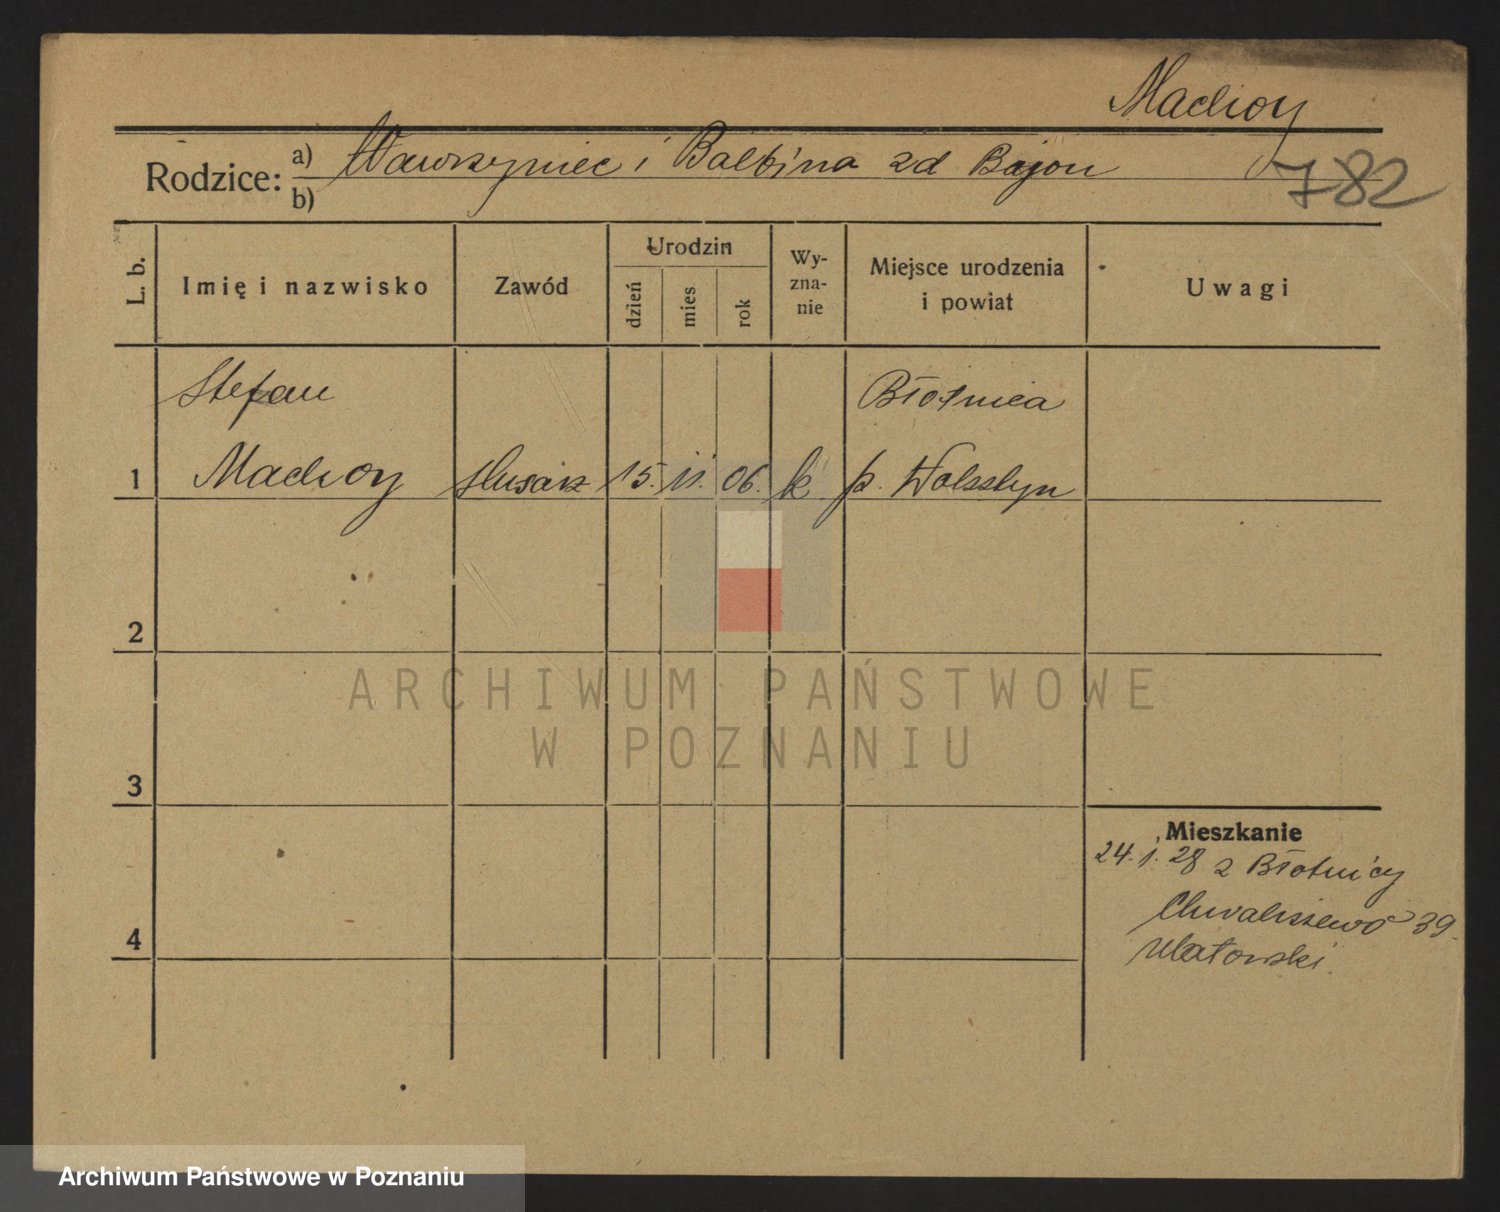 Machoy
Rodzice: a) Wawrzyniec i Balbina zd Bajon
b)
782
L. b.
Imię i nazwisko
Zawód
Urodzin
dzień
mies
rok
Wy-
zna-
nie
Miejsce urodzenia
i powiat
Uwagi
Stefan
Błotnica
1 Machoy ślusarz 15. 11. 06. k p. Wolsztyn
2
ARCHIWUM PAŃSTWOWE
W POZNANIU
3
Mieszkanie
24.1.28 z Błotnicy
Chwaliszewo 39
4
Archiwum Państwowe w Poznaniu